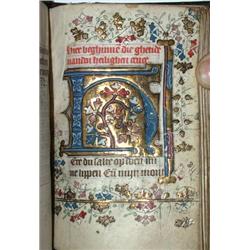 Hier beghinnē die ghetide
vandē heilighen cruce
HEre du salt opdoen mi
ne lippen Eñ mijn mont